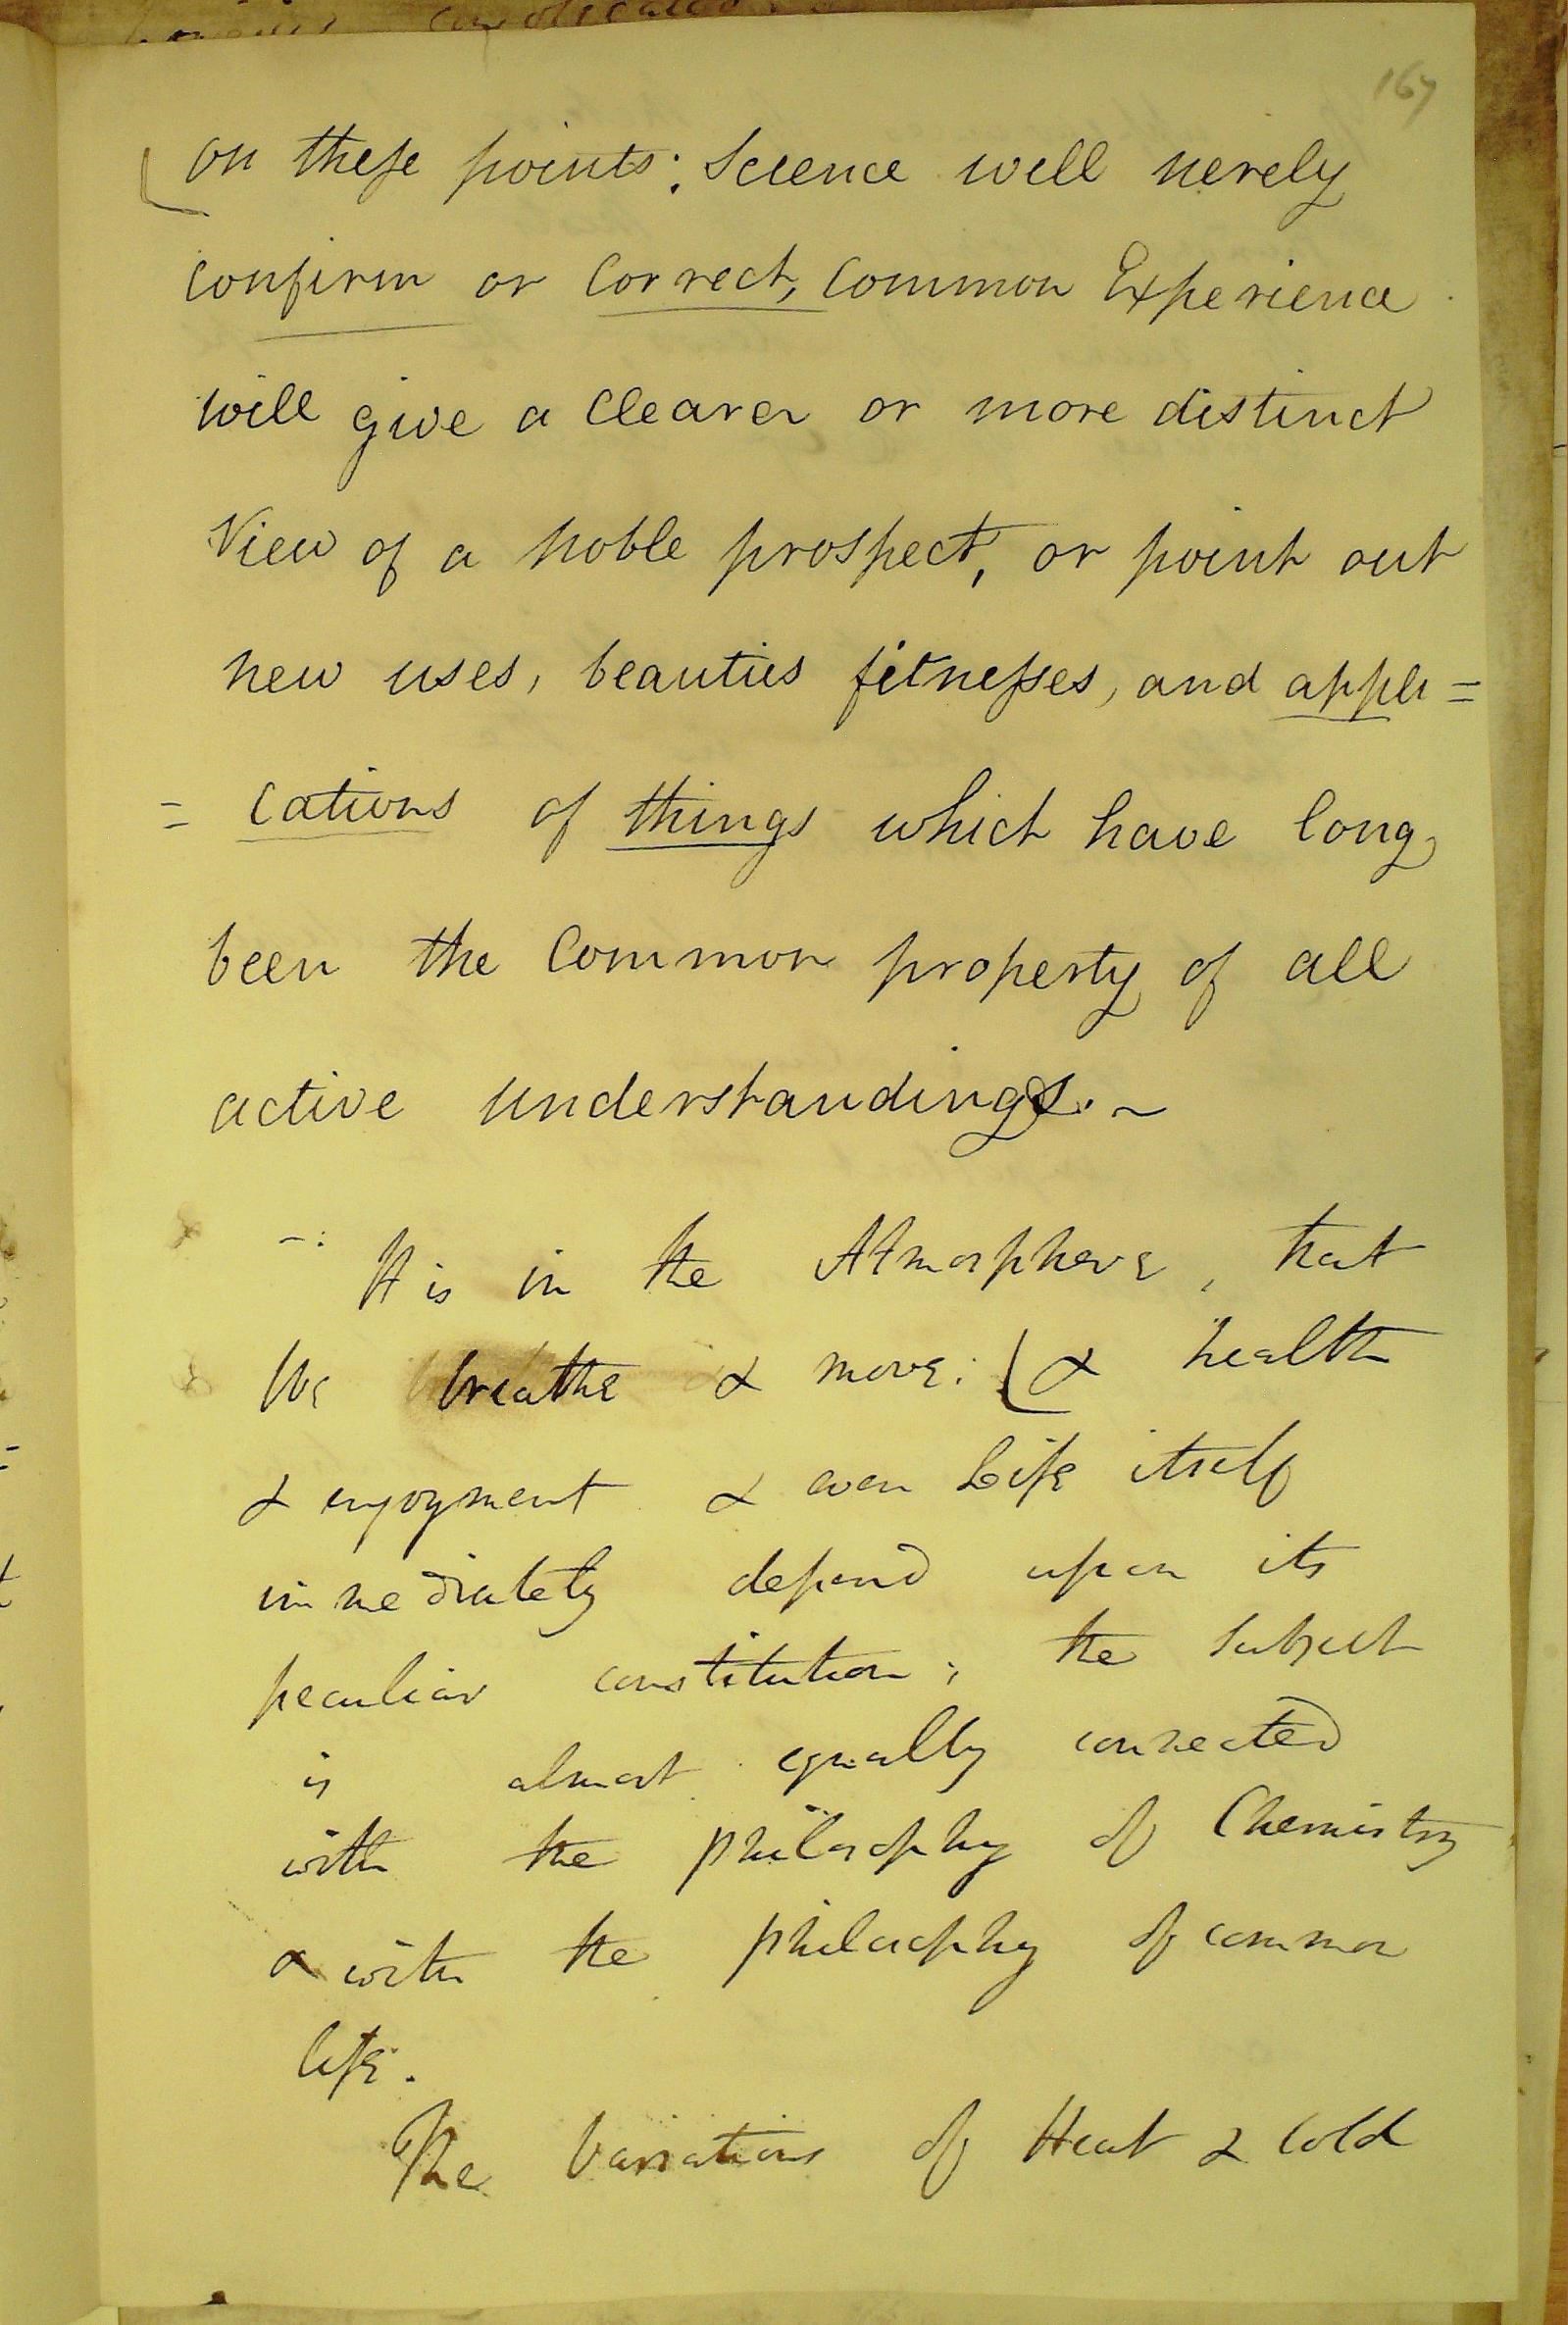 167
on these points; Science will merely
confirm or correct, common Experience
will give a clearer or more distinct
View of a noble prospect, or point out
new uses, beauties fitnesses, and appli=
= cations of things which have long
been the Common property of all
active understandings. ~
-: It is in the Atmosphere, that
We breathe & move: & health
& enjoyment & even Life itself
immediately depend upon its
peculiar constitution; the subject
is almost equally connected
with the philosophy of Chemistry
& with the philosophy of common
life.
The Variations of Heat & Cold